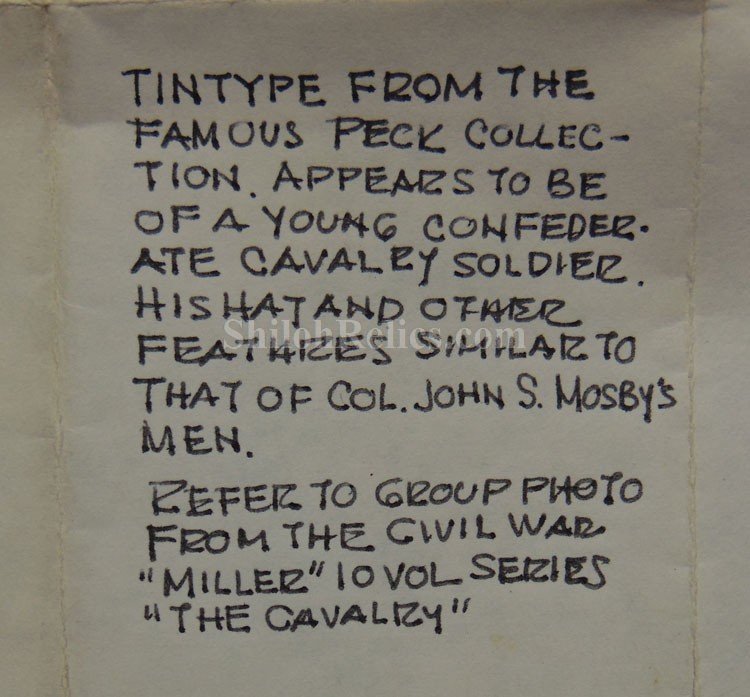 TINTYPE FROM THE
FAMOUS PECK COLLEC-
TION. APPEARS TO BE
OF A YOUNG CONFEDER-
ATE CAVALRY SOLDIER.
HIS HAT AND OTHER
ShilohRelics.com
FEATURES SIMILAR TO
THAT OF COL. JOHN S. MOSBY'S
MEN.
REFER TO GROUP PHOTO
FROM THE CIVIL WAR
"MILLER" 10 VOL SERIES
"THE CAVALRY"